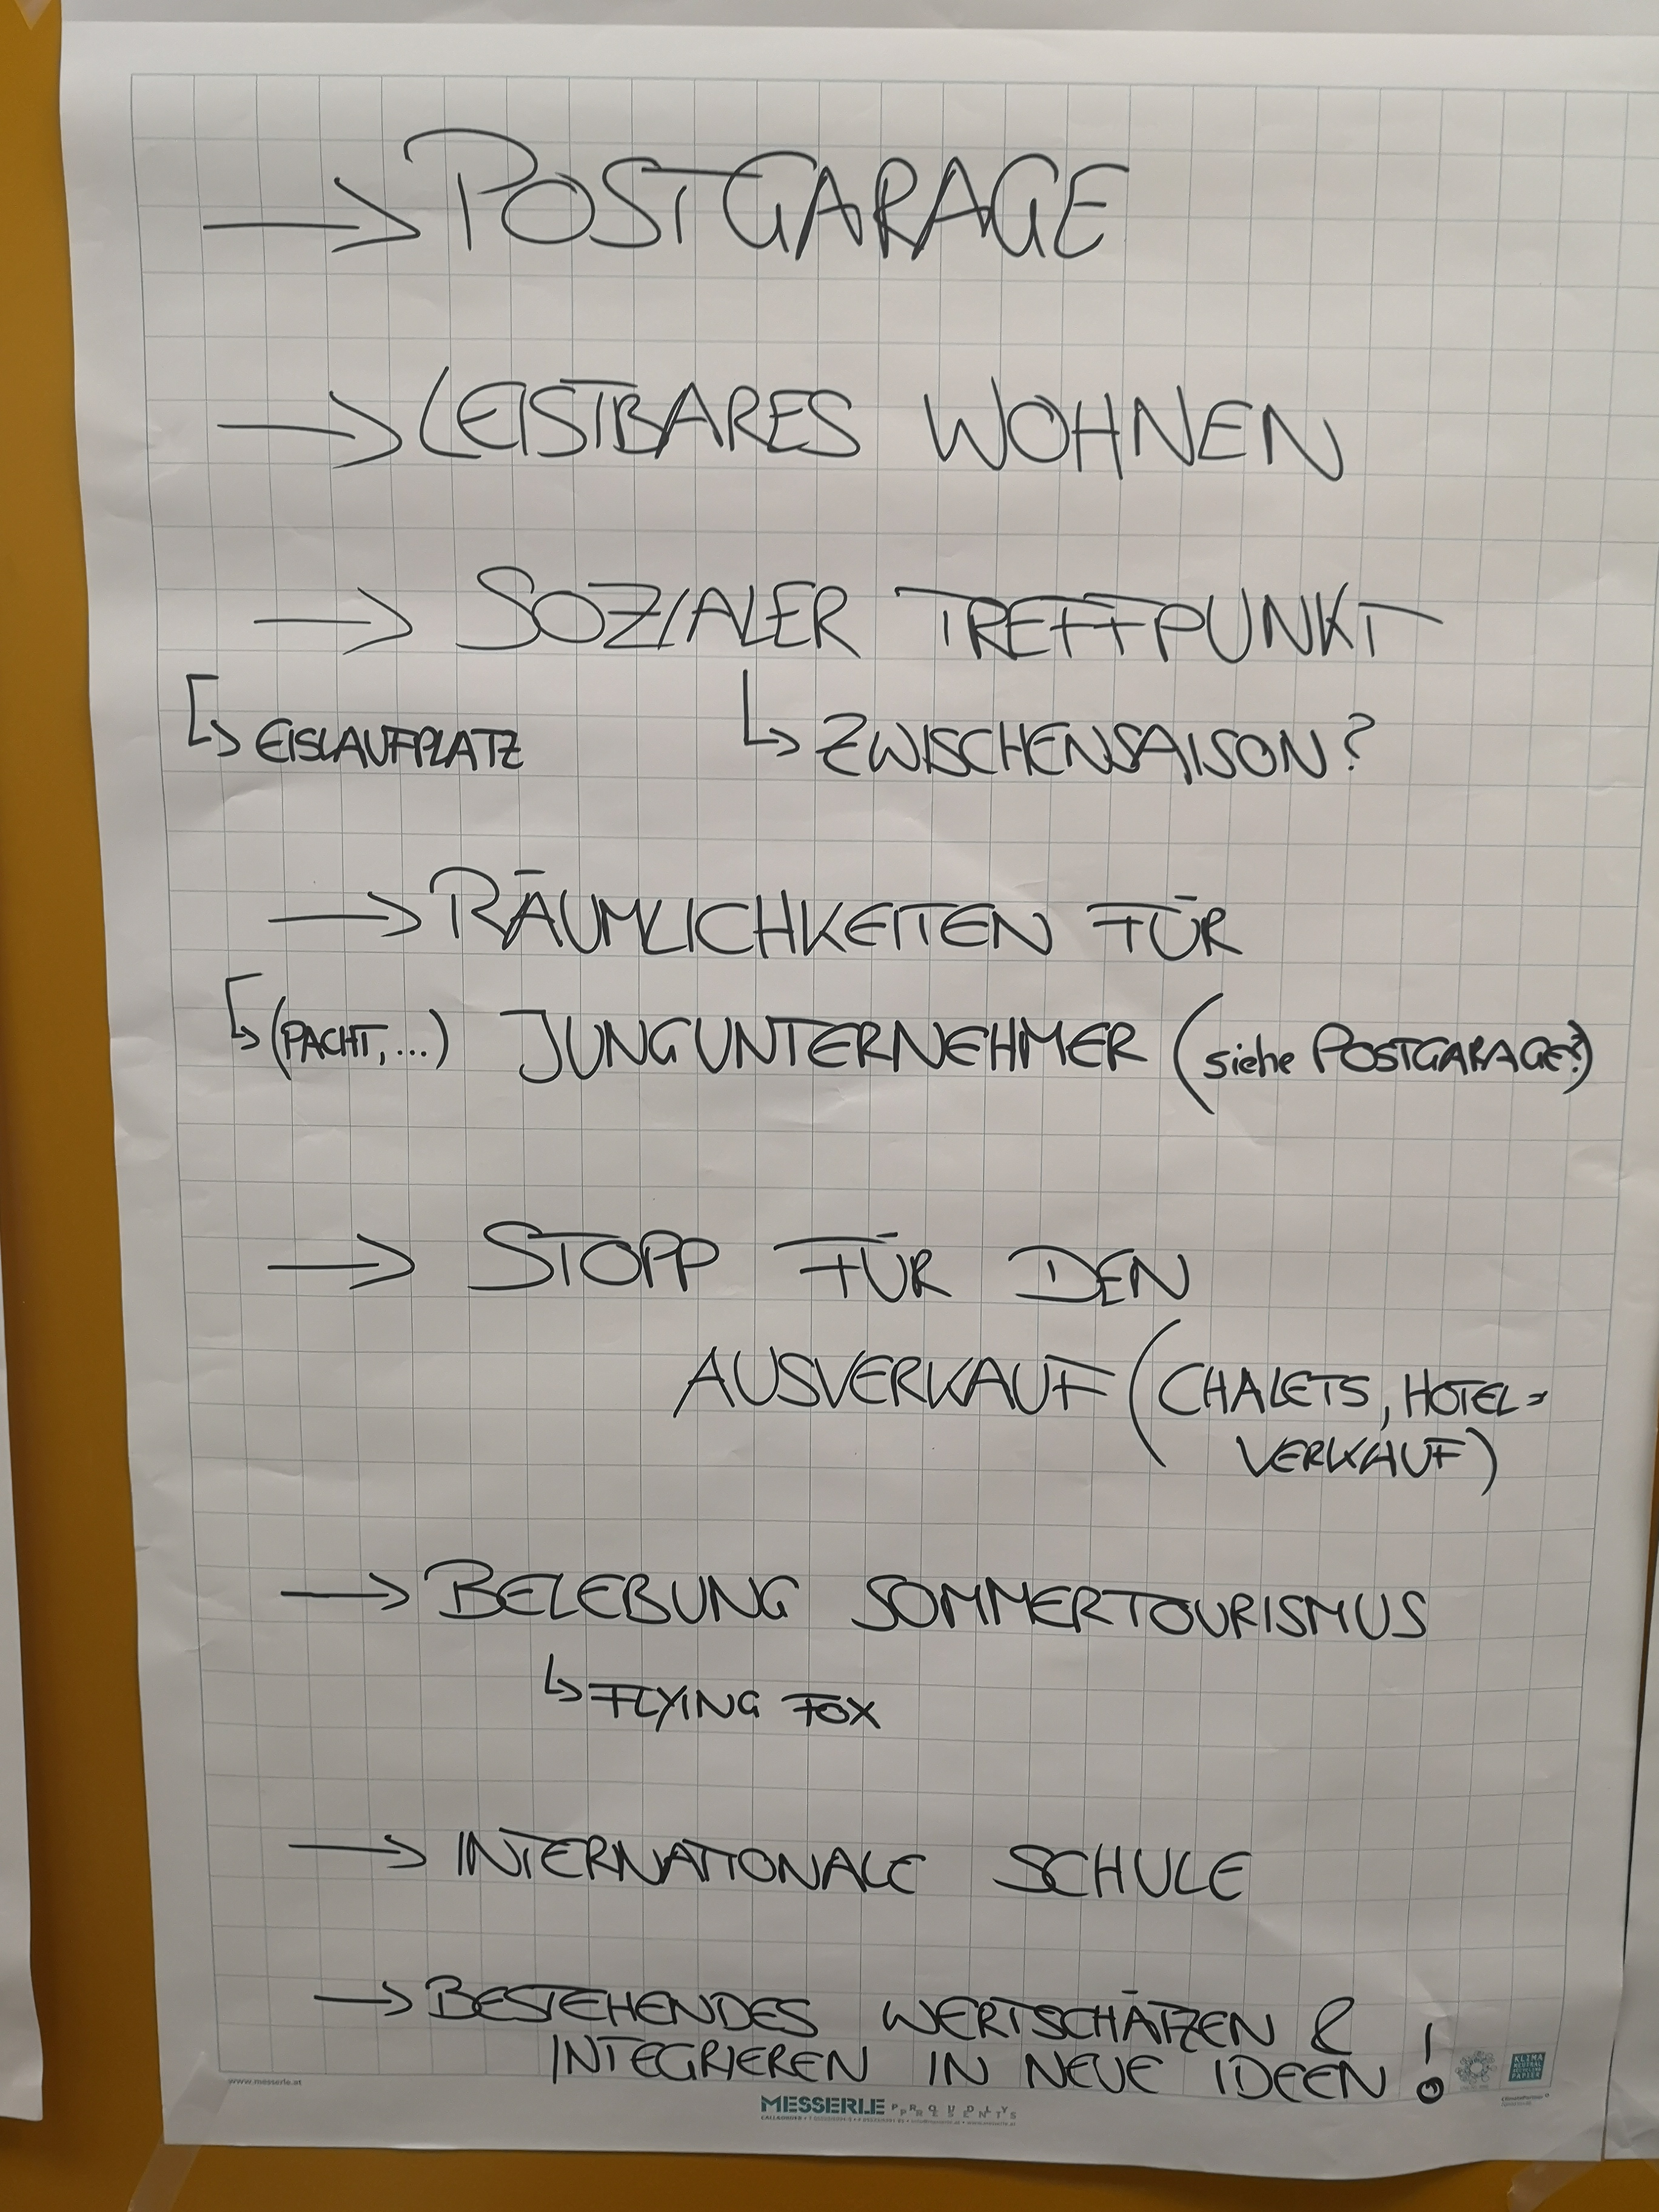 → POSTGARAGE
→ LEISTBARES WOHNEN
→ SOZIALER TREFFPUNKT
↳ EISLAUFPLATZ ↳ ZWISCHENSAISON?
→ RÄUMLICHKEITEN FÜR
↳ (PACHT, ...) JUNGUNTERNEHMER (siehe POSTGARAGE?)
→ STOPP FÜR DEN
AUSVERKAUF (CHALETS, HOTEL=
VERKAUF)
→ BELEBUNG SOMMERTOURISMUS
↳ FLYING FOX
→ INTERNATIONALE SCHULE
→ BESTEHENDES WERTSCHÄTZEN &
INTEGRIEREN IN NEUE IDEEN !
www.messerle.at
KLIMA NEUTRAL PAPIER
MESSERLE PROUDLY PRESENTS